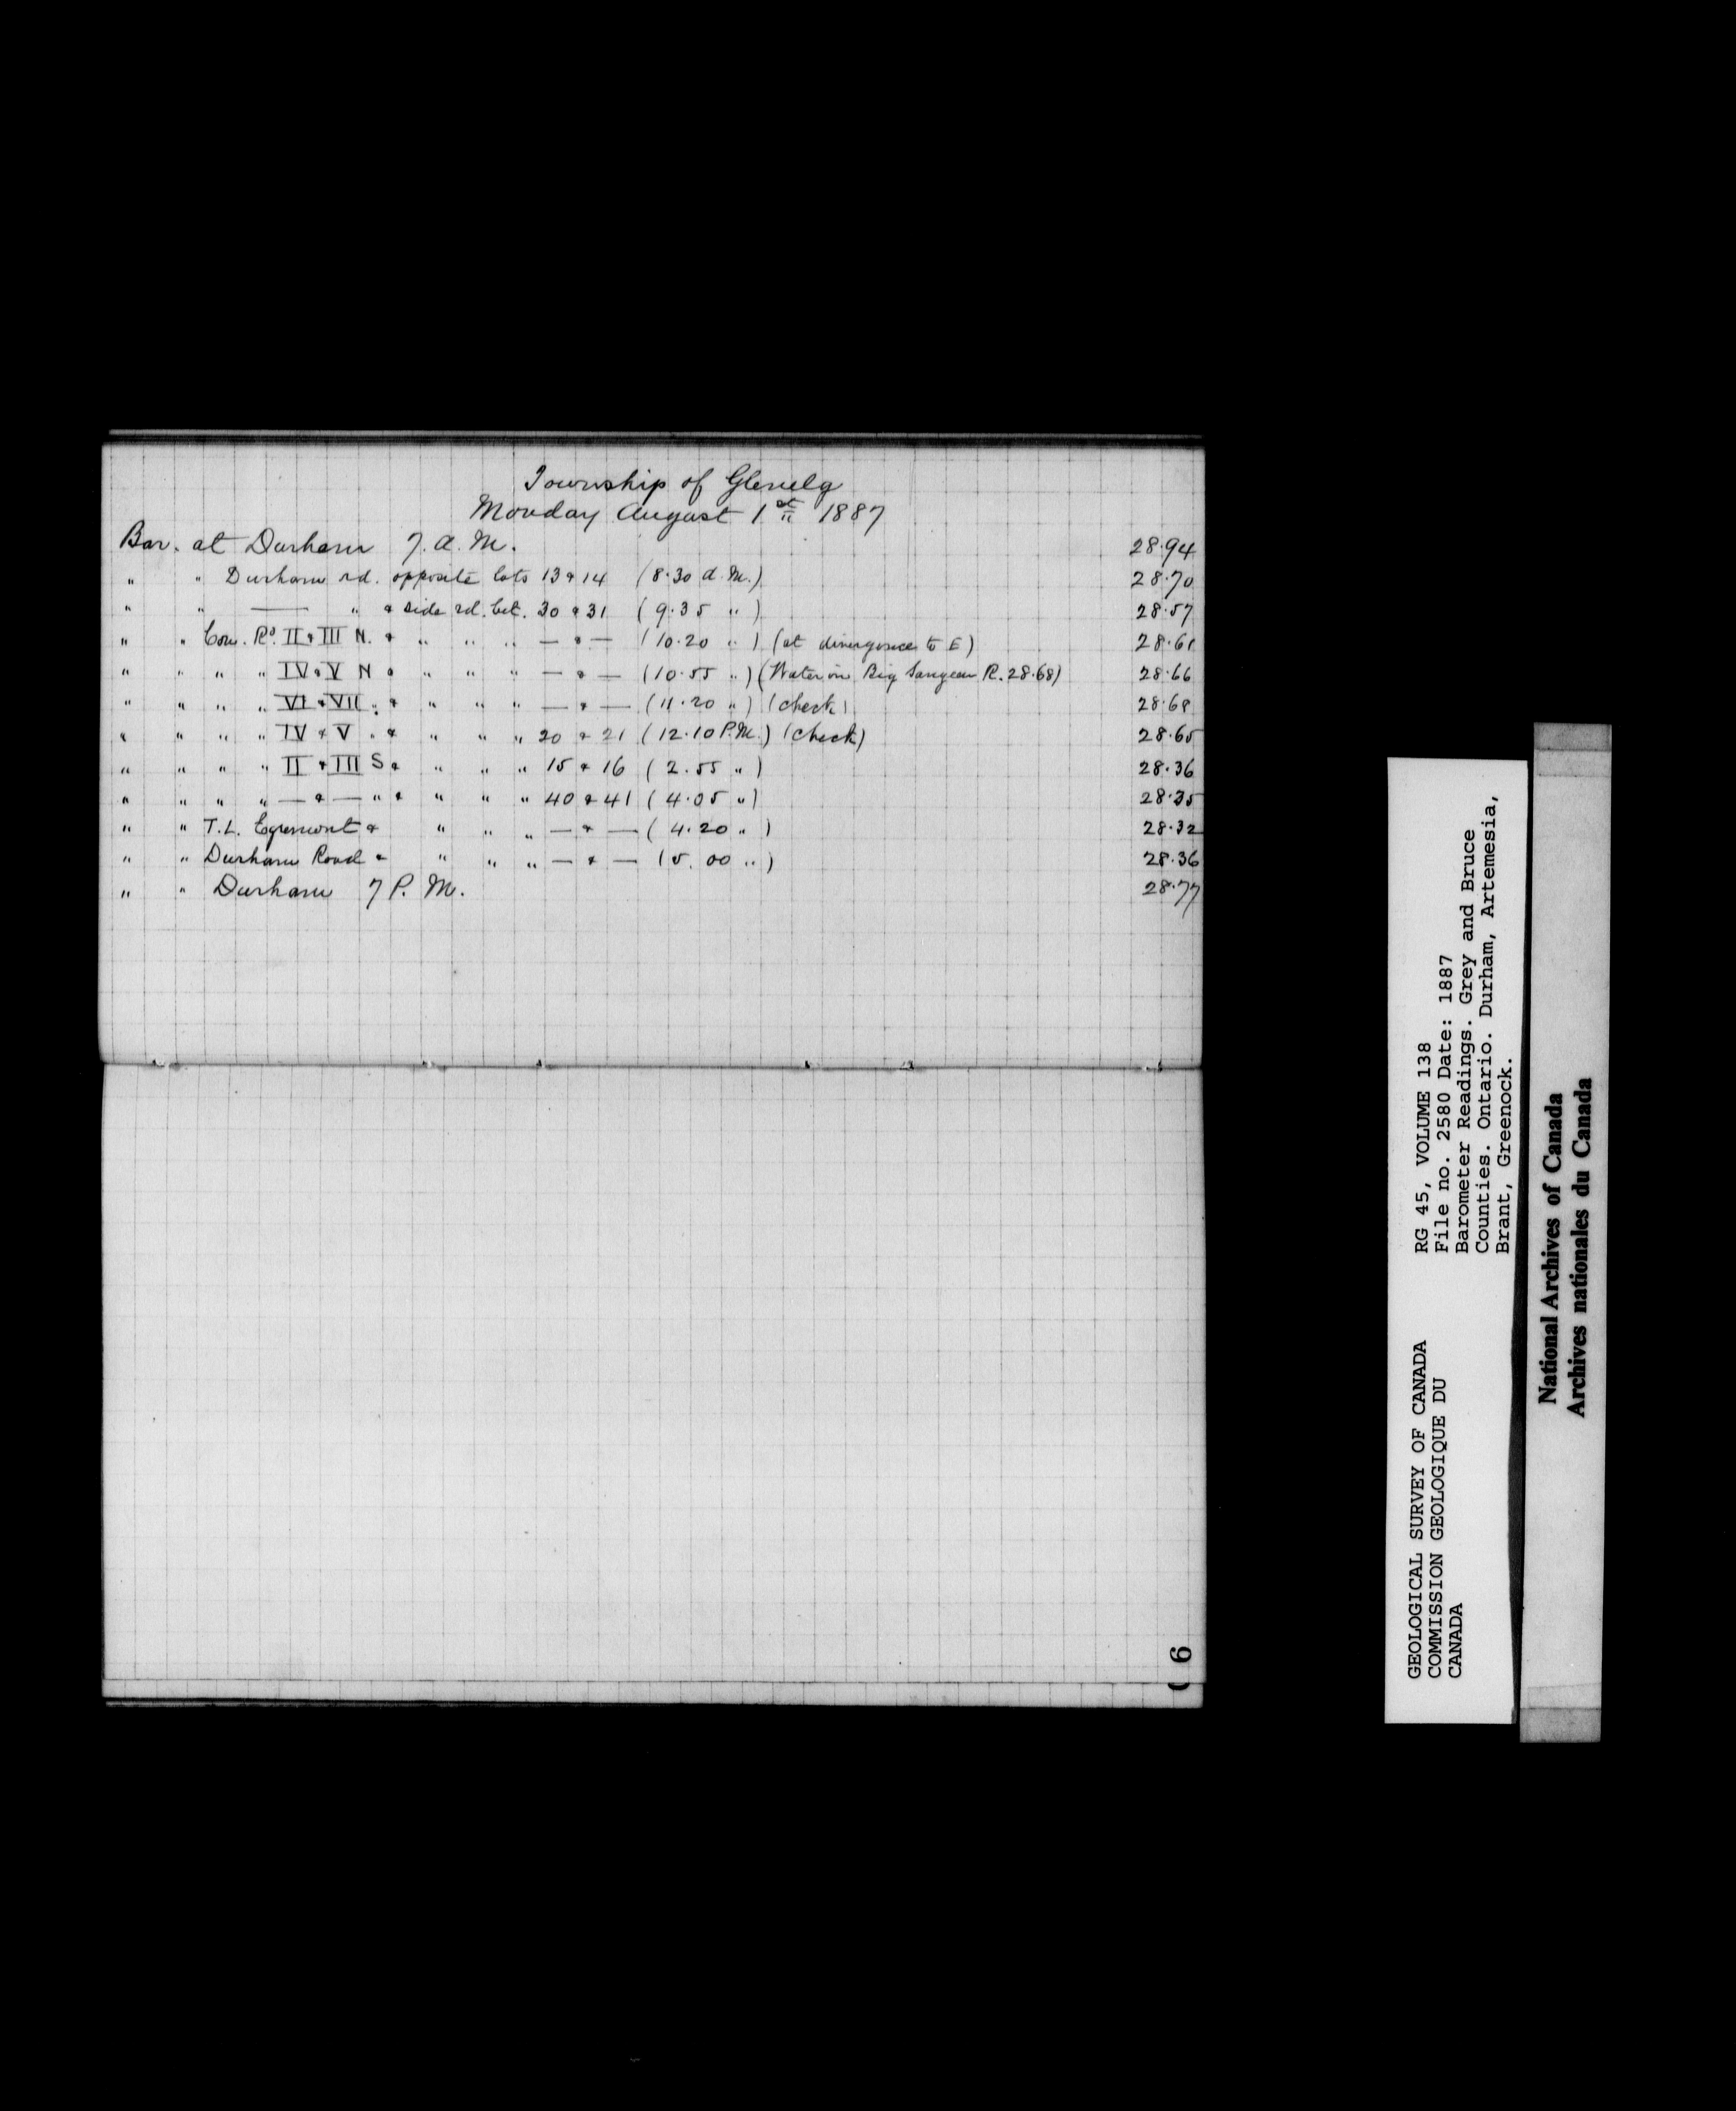 Township of Glenelg
Monday August 1st 1887
Bar. at Durham 7. A. M. 28.94
" " Durham rd. opposite lots 13 & 14 (8.30 A. M.) 28.70
" " — " & side rd. bet. 30 & 31 (9.35 " ) 28.57
" " Con. Rd. II & III N. & " " " — & — (10.20 " ) (at divergence to E) 28.61
" " " " IV & V N & " " " — & — (10.55 " ) (Water in Big Saugeen R. 28.68) 28.66
" " " " VI & VII " & " " " — & — (11.20 " ) (check) 28.68
" " " " IV & V " & " " " 20 & 21 (12.10 P.M.) (check) 28.65
" " " " II & III S & " " " 15 & 16 (2.55 " ) 28.36
" " " " — & — " & " " " 40 & 41 (4.05 " ) 28.35
" " T.L. Egremont & " " " — & — (4.20 " ) 28.32
" " Durham Road & " " " — & — (5.00 " ) 28.36
" " Durham 7 P. M. 28.77
6
GEOLOGICAL SURVEY OF CANADA
COMMISSION GEOLOGIQUE DU
CANADA
RG 45, VOLUME 138
File no. 2580 Date: 1887
Barometer Readings. Grey and Bruce
Counties. Ontario. Durham, Artemesia,
Brant, Greenock.
National Archives of Canada
Archives nationales du Canada